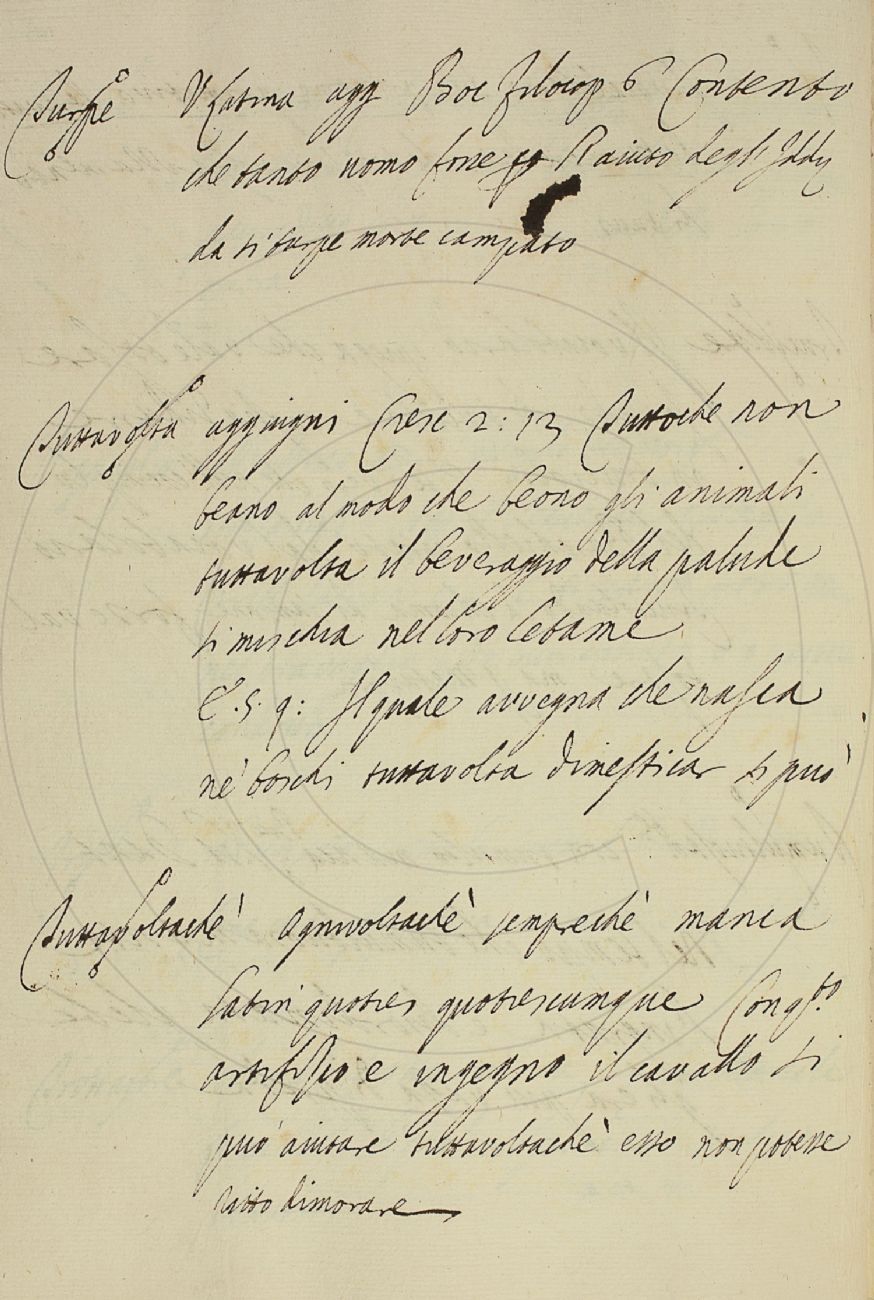 Turpe V Latina agg Boc filocop 6 Contento
che tanto uomo fosse R aiuto degl'Iddij
da si turpe morte campato
Tuttavolta aggiugni Cresc 2: 13 Tuttoche non
beano al modo che beono gli animali
tuttavolta il beveraggio della palude
si mischia nel loro letame
E. 5. 9: Il quale avvegna che nasca
ne' boschi tuttavolta dimesticar si può
Tuttavoltachè Ognivoltachè sempreché manca
latin quoties quotiescumque Con q.to
artifizio e ingegno il cavallo si
può aiutare tuttavoltachè esso non potesse
ritto dimorare